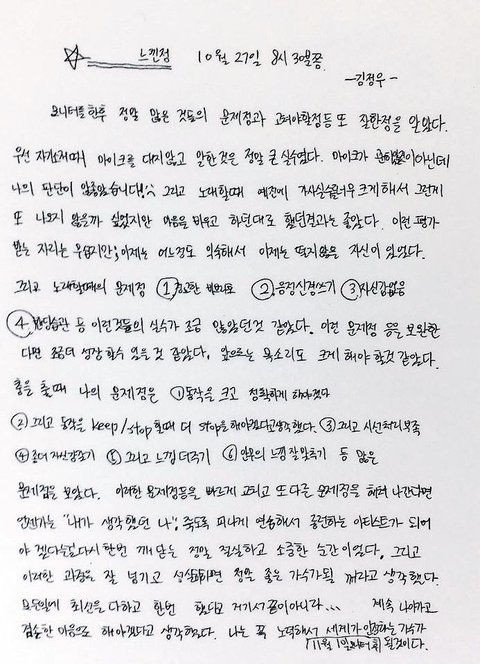 ☆ 느낀점 10월 27일 8시 30분쯤.
-김정우-
모니터를 한후 정말 많은 것들의 문제점과 고쳐야할점등 또 잘한점을 알았다.
우선 자기소개때 마이크를 대지않고 말한것은 정말 큰 실수였다. 마이크가 아닌데
나의 판단이 않좋았습니다!^^ 그리고 노래할때 예전에 자신 너무 크게해서 그런게
또 나오지 않을까 싶었지만 마음을 비우고 하던대로 했던결과는 좋았다. 이런 평가
받는 자리는 무섭지만; 이제는 어느정도 익숙해서 이제는 떨지않을 자신이 있었다.
그리고 노래할때의 문제점 ① ② 음정신경쓰기 ③ 자신감없음
④ 습관 등 이런것들의 실수가 조금 않았던것 같았다. 이런 문제점 등을 보완한
다면 조금더 성장 할수 있을 것 같았다. 앞으로는 목소리도 크게 해야 할것 같았다.
춤을 출때 나의 문제점은 ① 동작을 크고 정확하게 해야겠다
② 그리고 동작을 keep/stop 할때 더 stop을 해야겠다고 생각했다. ③ 그리고 시선처리 부족
④ 좀더 자신감갖기 ⑤ 그리고 느낌 더주기 ⑥ 안무의 느낌 잘 맞추기 등 많은
문제점을 보았다. 이러한 문제점등을 빠르게 고치고 또 다른 문제점을 해쳐 나간다면
언젠가는 "내가 생각했던 나"; 죽도록 피나게 연습해서 공전하는 아티스트가 되어
야 겠다는걸 다시한번 깨닫는 정말 절실하고 소중한 순간이었다. 그리고
이러한 과정을 잘 넘기고 성실하면 정말 좋은 가수가될 꺼라고 생각했다.
모든일에 최선을 다하고 한번 했다고 저기서 끝이아니라... 계속 나아가고
겸손한 마음으로 해야겠다고 생각했다. 나는 꼭 노력해서 세계가 인정하는 가수가
될것이다.
11월 1일